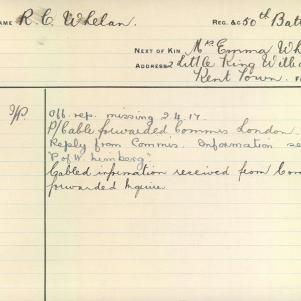 NAME R. C. Whelan. REG. &C 50th Batt
NEXT OF KIN Mrs Emma Wh
ADDRESS 2 Little King Willia
Kent Town.
Off. rep. missing 2.4.17.
P/Cable forwarded Commis London.
Reply from Commis. Information se
"P of W. Limberg"
Cabled information received from Com
forwarded Inquirer